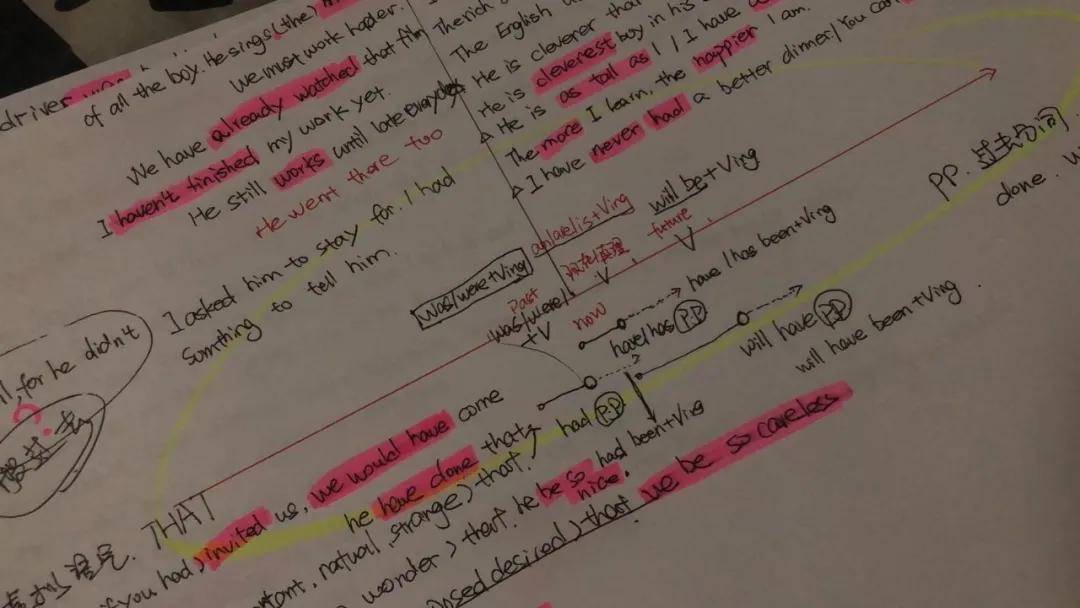 driver
of all the boy. He sings (the)
we must work harder.
We have already watched that film
I haven't finished my work yet.
He still works until late everyday
He went there too
The rich
The English
He is cleverer than
He is cleverest boy in his
He is as tall as I / I have
The more I learn, the happier I am.
I have never had a better dinner / You can
I asked him to stay for. I had
Somthing to tell him.
ll, for he didn't
?
am/are/is+Ving
will be+Ving
was/were+Ving
Past
now
future
V
V
was/were/
+V
have/has been+Ving
have/has P.P
will have P.P
will have been+Ving
had P.P
had been+Ving
PP. 过去分词
done.
THAT
if you had) invited us, we would have come
he have done that
natural, strange) that.
wonder) that. He be so nice.
desired) that we be so careless